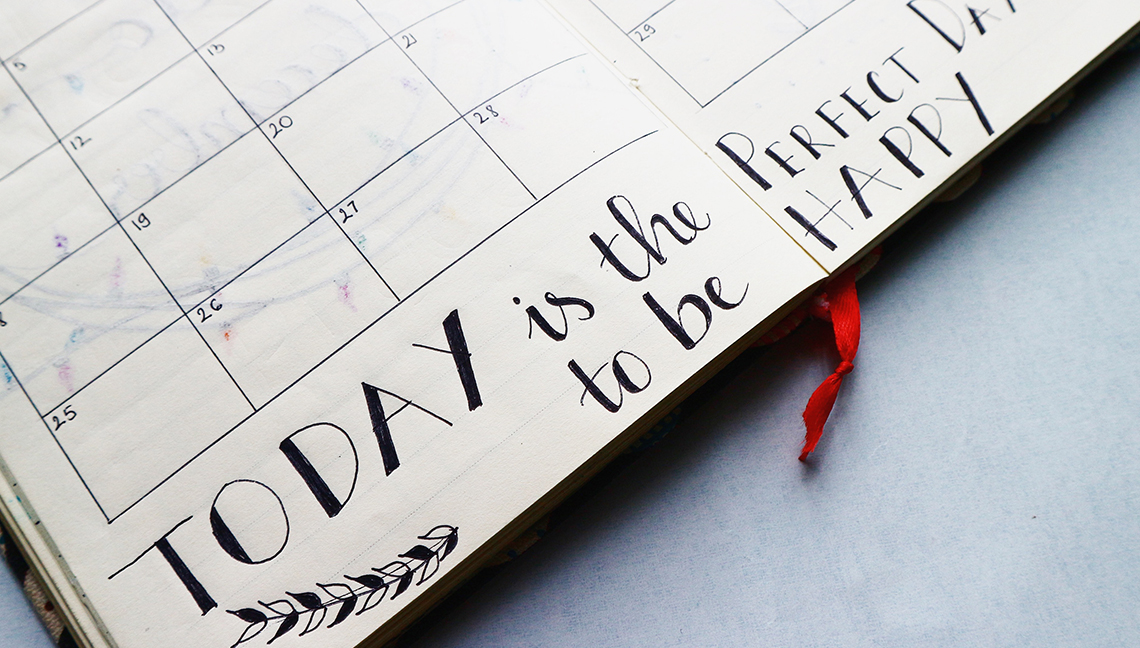 5
12 13
19 20 21
25 26 27 28
29
TODAY is the PERFECT DAY
to be HAPPY